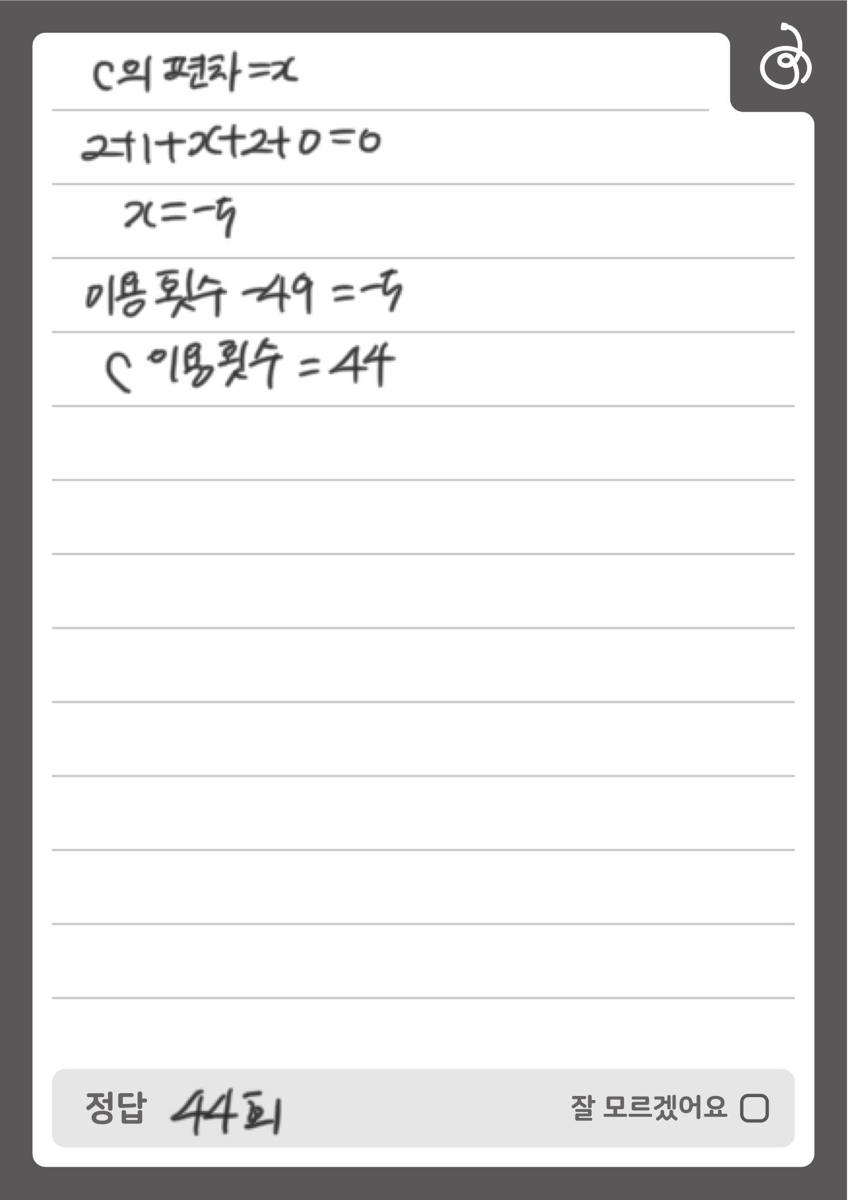 C의 편차=x
2+1+x+2+0=0
x=-5
이용횟수-49=-5
C 이용횟수=44
정답 44회
잘 모르겠어요